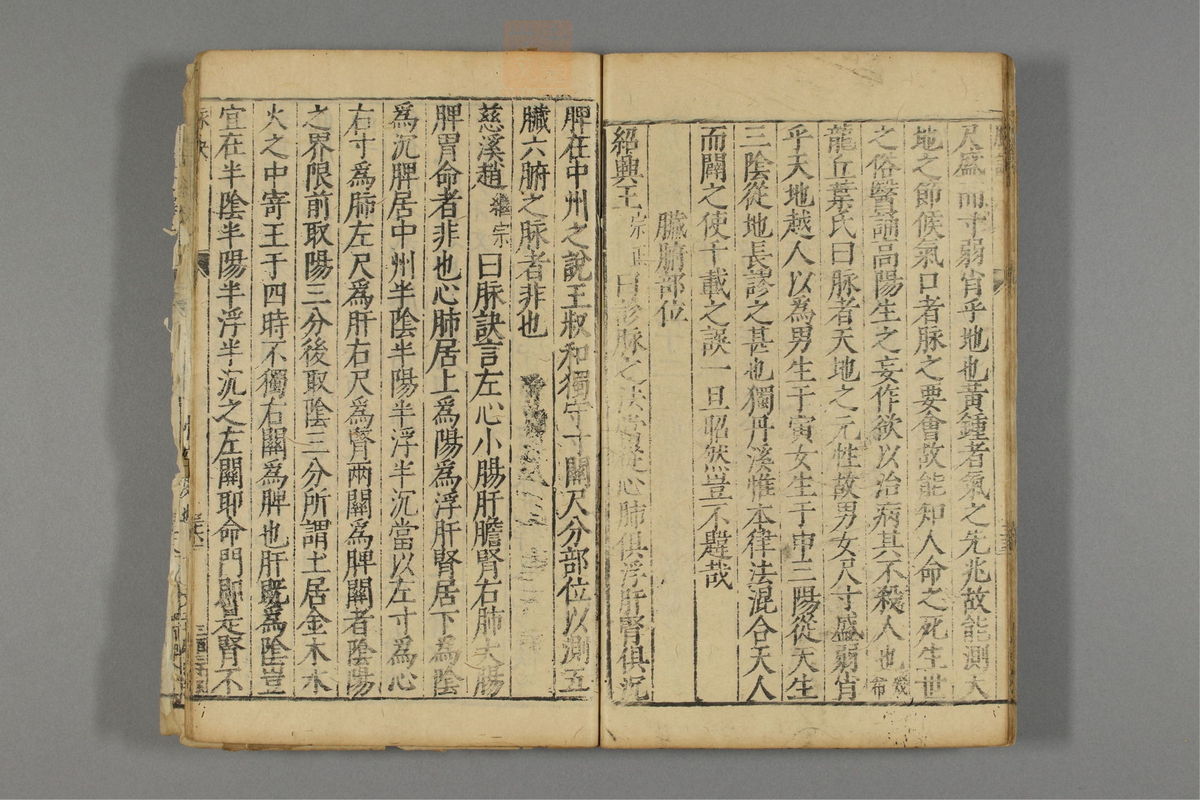 尺盛而寸弱肖乎地也黃鍾者氣之先兆故能測天
地之節候氣口者脉之要會故能知人命之死生世
之俗醫誦高陽生之妄作欲以治病其不殺人也幾希
龍丘葉氏曰脉者天地之元性故男女尺寸盛弱肖
乎天地越人以為男生于寅女生于申三陽從天生
三陰從地長謬之甚也獨丹溪惟本律法混合天人
而闢之使千載之誤一旦昭然豈不韙哉
臟腑部位
紹興王宗正曰診脉之法當從心肺俱浮肝腎俱沉
脾在中州之說王叔和獨守寸關尺分部位以測五
臟六腑之脉者非也
慈溪趙繼宗曰脉訣言左心小腸肝膽腎右肺大腸
脾胃命者非也心肺居上為陽為浮肝腎居下為陰
為沉脾居中州半陰半陽半浮半沉當以左寸為心
右寸為肺左尺為肝右尺為腎兩關為脾關者陰陽
之界限前取陽三分後取陰三分所謂土居金木水
火之中寄王于四時不獨右關為脾也肝既為陰豈
宜在半陰半陽半浮半沉之左關耶命門即是腎不